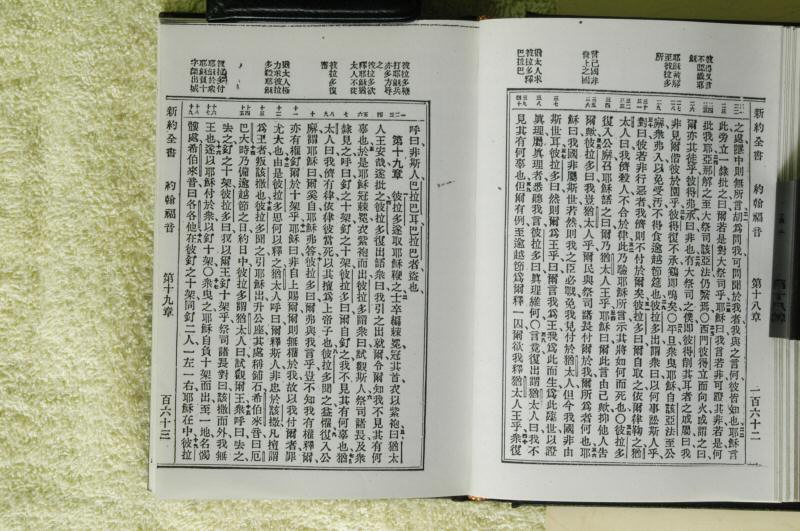 新約全書 約翰福音 第十八章 二百六十二
彼得又言不認識耶穌
耶穌被解至彼拉多
言己國非世上之國
猶太人求彼拉多釋巴拉巴
之處隱中則無所言胡爲問我可問聞於我者我與之言何彼皆知也耶穌言
此旁立一隸批之曰爾若是對大祭司乎耶穌曰我言若非可證其非若是何
批我耶亞那解之至大祭司該亞法仍繫焉〇西門彼得立而向火或謂之曰
爾亦其徒乎彼得弗承曰非也有大祭司之僕卽彼得削其耳者之戚屬曰我
非見爾偕彼於園乎彼得復不承鷄卽鳴矣〇平旦衆曳耶穌自該亞法至公
廨衆弗入以免受汚不得食逾越節筵也彼拉多出謂衆曰以何事訟斯人乎
對曰彼若非行惡者我儕則不付於爾矣彼拉多曰爾自取之依爾律鞫之猶
太人曰我儕殺人不合於律此乃驗耶穌所言示其將如何而死也〇彼拉多
復入公廨召耶穌語之曰爾乃猶太人王乎耶穌曰爾此言由己歟抑他人告
爾歟彼拉多曰我豈猶太人乎爾民與祭司諸長付爾於我爾所爲者何也耶
穌曰我國非屬斯世若然則我之臣必戰免我見付於猶太人但今我國非由
斯世耳彼拉多曰然則爾爲王乎曰爾言我爲王我爲此而生爲此臨世以證
眞理屬眞理者悉聽我言彼拉多曰眞理維何〇言竟復出謂猶太人曰我不
見其有何辜也但爾有例至逾越節爲爾釋一囚爾欲我釋猶太人王乎衆復
彼拉多鞭打耶穌兵亦多方辱之
彼拉多欲釋耶穌猶太人不從
彼拉多復審
猶太人極力求彼拉多殺耶穌
彼拉多付耶穌於衆
呼曰非斯人乃巴拉巴耳巴拉巴者盜也
第十九章 彼拉多遂取耶穌鞭之士卒編棘冕冠其首衣以紫袍曰猶太
人王安哉遂批之彼拉多復出語衆曰我引之出就爾令爾知我不見其有何
辜也於是耶穌冠棘冕衣紫袍而出彼拉多謂衆曰試觀斯人祭司諸長及衆
隸見之呼曰釘之十架釘之十架彼拉多曰爾自釘之我不見其有何辜也猶
太人曰我儕有律依律彼當死以其擅爲上帝子也彼拉多聞之益懼復入公
廨謂耶穌曰爾奚自耶穌弗答彼拉多曰爾弗與我言乎豈不知我有權釋爾
亦有權釘爾於十架乎耶穌曰非自上賜爾爾則無權於我故以我付爾者罪
尤大也由是彼拉多思何以釋之猶太人呼曰爾釋斯人非忠於該撒凡擅謂
爲王者叛該撒也彼拉多聞之引耶穌出升公座其處稱鋪石希伯來音曰厄
巴大時乃備逾越節之日約日中彼拉多謂猶太人曰試觀爾王衆呼曰去之
去之釘之十架彼拉多曰我以爾王釘十架乎祭司諸長對曰該撒而外我無
王也遂以耶穌付於衆以釘十架〇衆曳之耶穌自負十架而出至一地名髑
髏處希伯來音曰各各他在彼釘之十架同釘二人一左一右耶穌在中彼拉
新約全書 約翰福音 第十九章 百六十三